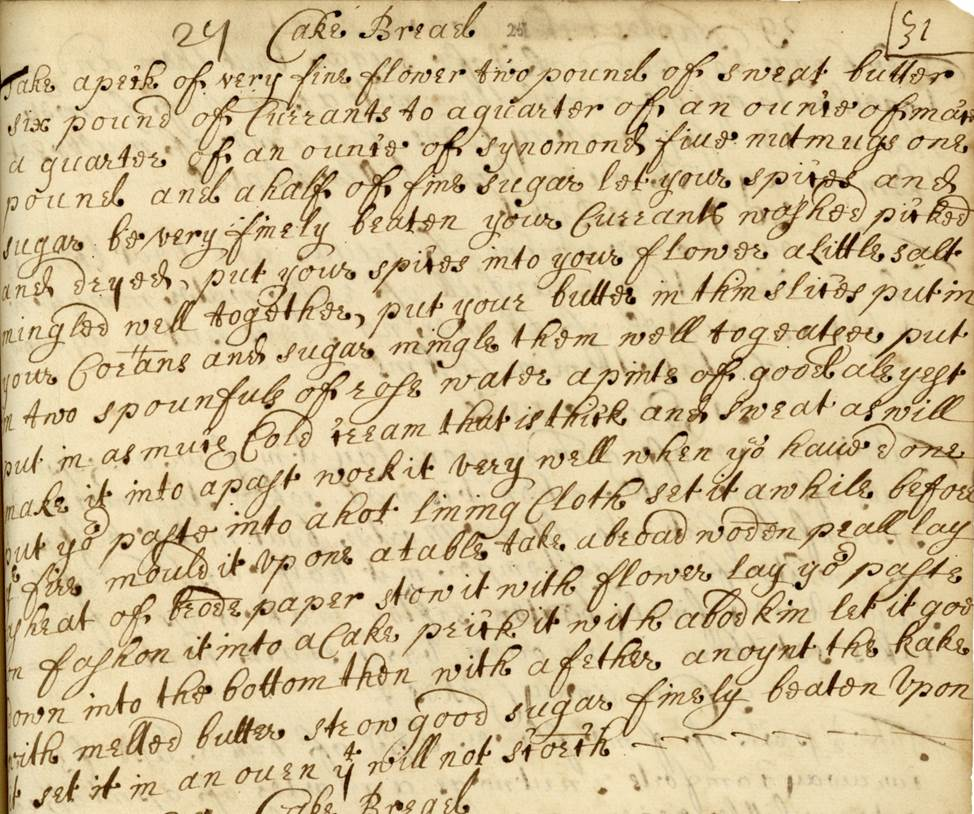 24 Cake Bread 251 31
Take a peck of very fine flower two pound of sweat butter
six pound of Currants to a quarter of an ounce of mace
a quarter of an ounce of synomond five nutmugs one
pound and a half of fine sugar let your spices and
sugar be very finely beaten your Currants washed picked
and dryed, put your spices into your flower a little salt
mingled well together, put your butter in thin slices put in
your Corans and sugar mingle them well togeather put
in two spounfuls of rose water a pinte of good ale yest
put in as much Cold cream that is thick and sweat as will
make it into a past work it very well when yo haue done
put yor paste into a hot lining Cloth set it a while before
fire mould it vp one a table take a broad woden peall lay
a sheat of brode paper strow it with flower lay yor paste
on fashon it into a Cake prick it with a bodkin let it goe
down into the bottom then with a fether anoynt the kake
with melted butter strow good sugar finely beaten vpon
it set it in an ouen yt will not scorch
Cake Bread